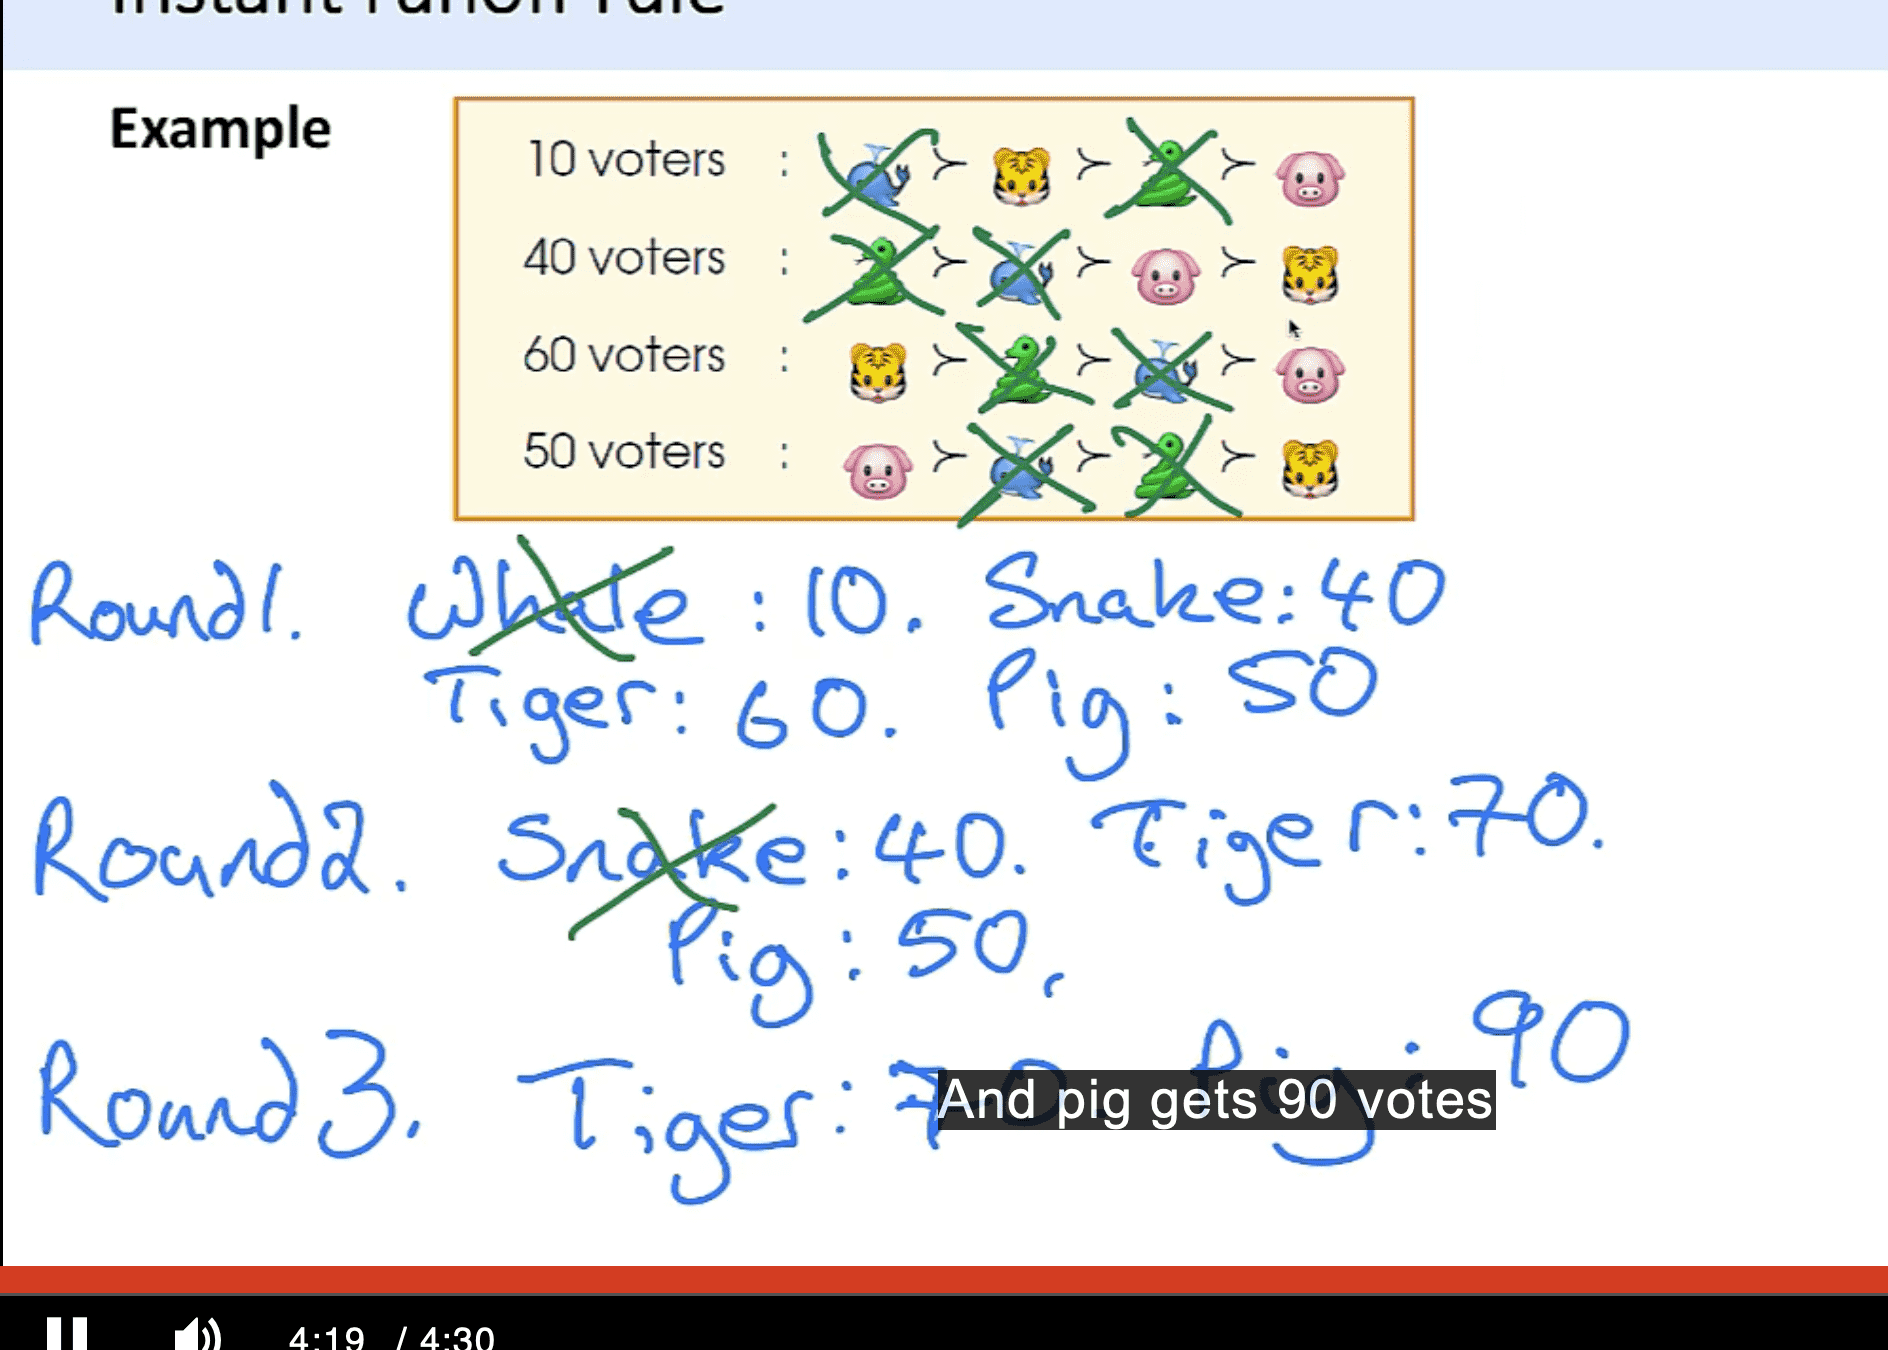 Instant runoff rule
Example
10 voters : ≻ ≻ ≻
40 voters : ≻ ≻ ≻
60 voters : ≻ ≻ ≻
50 voters : ≻ ≻ ≻
Round 1. Whale : 10. Snake: 40
Tiger: 60. Pig: 50
Round 2. Snake: 40. Tiger: 70.
Pig: 50.
Round 3. Tiger: 70. Pig: 90
And pig gets 90 votes
4:19 / 4:30